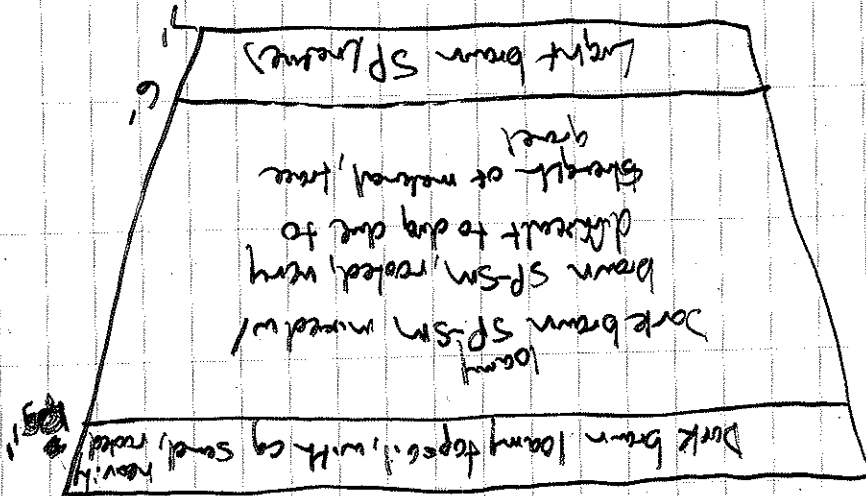 Dark brown loamy topsoil, with cg sand, heavily rooted
loamy
Dark brown SP-SM mixed w/
brown SP-SM, rooted, very
difficult to dig due to
strength of material, trace
gravel
6'
Light brown SP (native)
7'